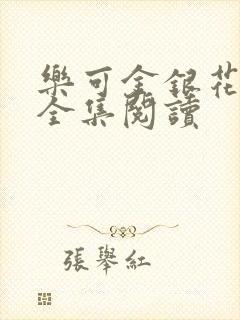 樂可金銀花
全集閱讀
張舉紅